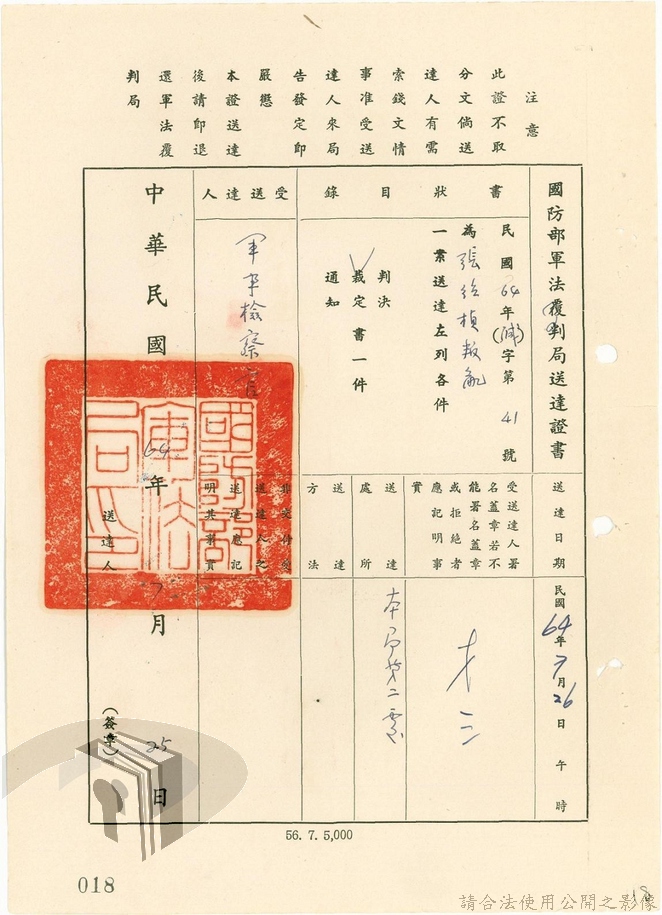 注意
此證不取
分文倘送
達人有需
索錢文情
事准受送
達人來局
告發定即
嚴懲
本證送達
後請即退
還軍法覆
判局
國防部軍法覆判局送達證書
送達日期
民國64年7月26日 午 時
書狀目錄
民國64年()字第41號
為張  叛亂
一案送達左列各件
判決
裁定書一件
通知
受送達人署
名蓋章若不
能署名蓋章
或拒絕者
應記明事
實
送達處所
本局第二
送達方法
受送達人
軍事檢察官
非交付受
送達人之
送達應記
明其事實
中華民國64年7月25日
送達人
(簽章)
56. 7. 5,000
018
18
請合法使用公開之影像